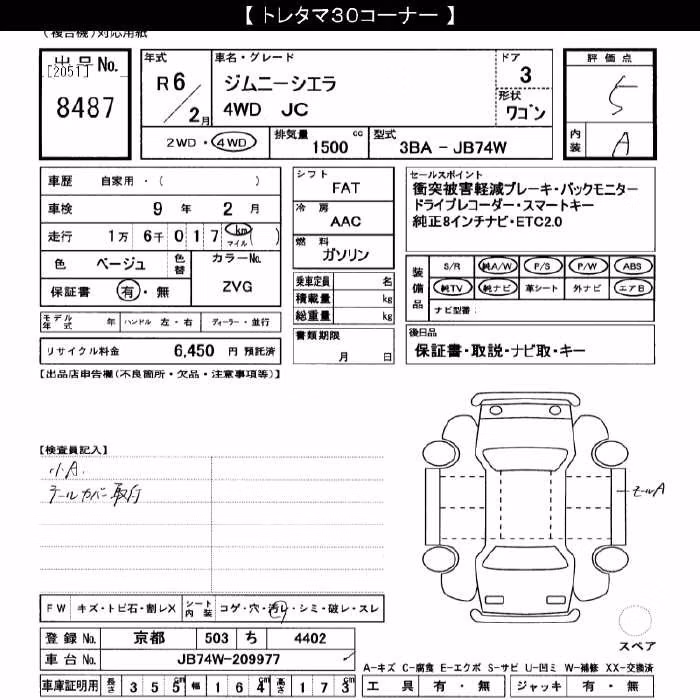 【 トレタマ30コーナー 】
(複合機)対応用紙
出品No.
[2051]
8487
年式
R 6 / 2月
車名・グレード
ジムニーシエラ
4WD JC
ドア
3
形状
ワゴン
評価点
5
内装
A
2WD・4WD
排気量
1500 cc
型式
3BA - JB74W
車歴 自家用・( )
車検 9年 2月
走行 1万 6千 0 1 7 km マイル ( )
色 ベージュ 色替
カラーNo.
ZVG
保証書 有・無
シフト
FAT
冷房
AAC
燃料
ガソリン
乗車定員 名
積載量 kg
総重量 kg
書類期限
月 日
セールスポイント
衝突被害軽減ブレーキ・バックモニター
ドライブレコーダー・スマートキー
純正8インチナビ・ETC2.0
装備品
S/R 純A/W P/S P/W ABS
純TV 純ナビ 革シート 外ナビ エアB
ナビ型番:
モデル年式 年 ハンドル 左・右 ディーラー・並行
リサイクル料金 6,450 円 預託済
後日品
保証書・取説・ナビ取・キー
【出品店申告欄(不良箇所・欠品・注意事項等)】
【検査員記入】
小A.
テールカバー取付
モールA
FW キズ・トビ石・割レX シート内装 コゲ・穴・汚レ・シミ・破レ・スレ
登録No. 京都 503 ち 4402
車台No. JB74W-209977
スペア
A-キズ C-腐食 E-エクボ S-サビ U-凹ミ W-補修 XX-交換済
車庫証明用 長さ 3 5 5 cm 幅 1 6 4 cm 高さ 1 7 3 cm
工具 有・無 ジャッキ 有・無